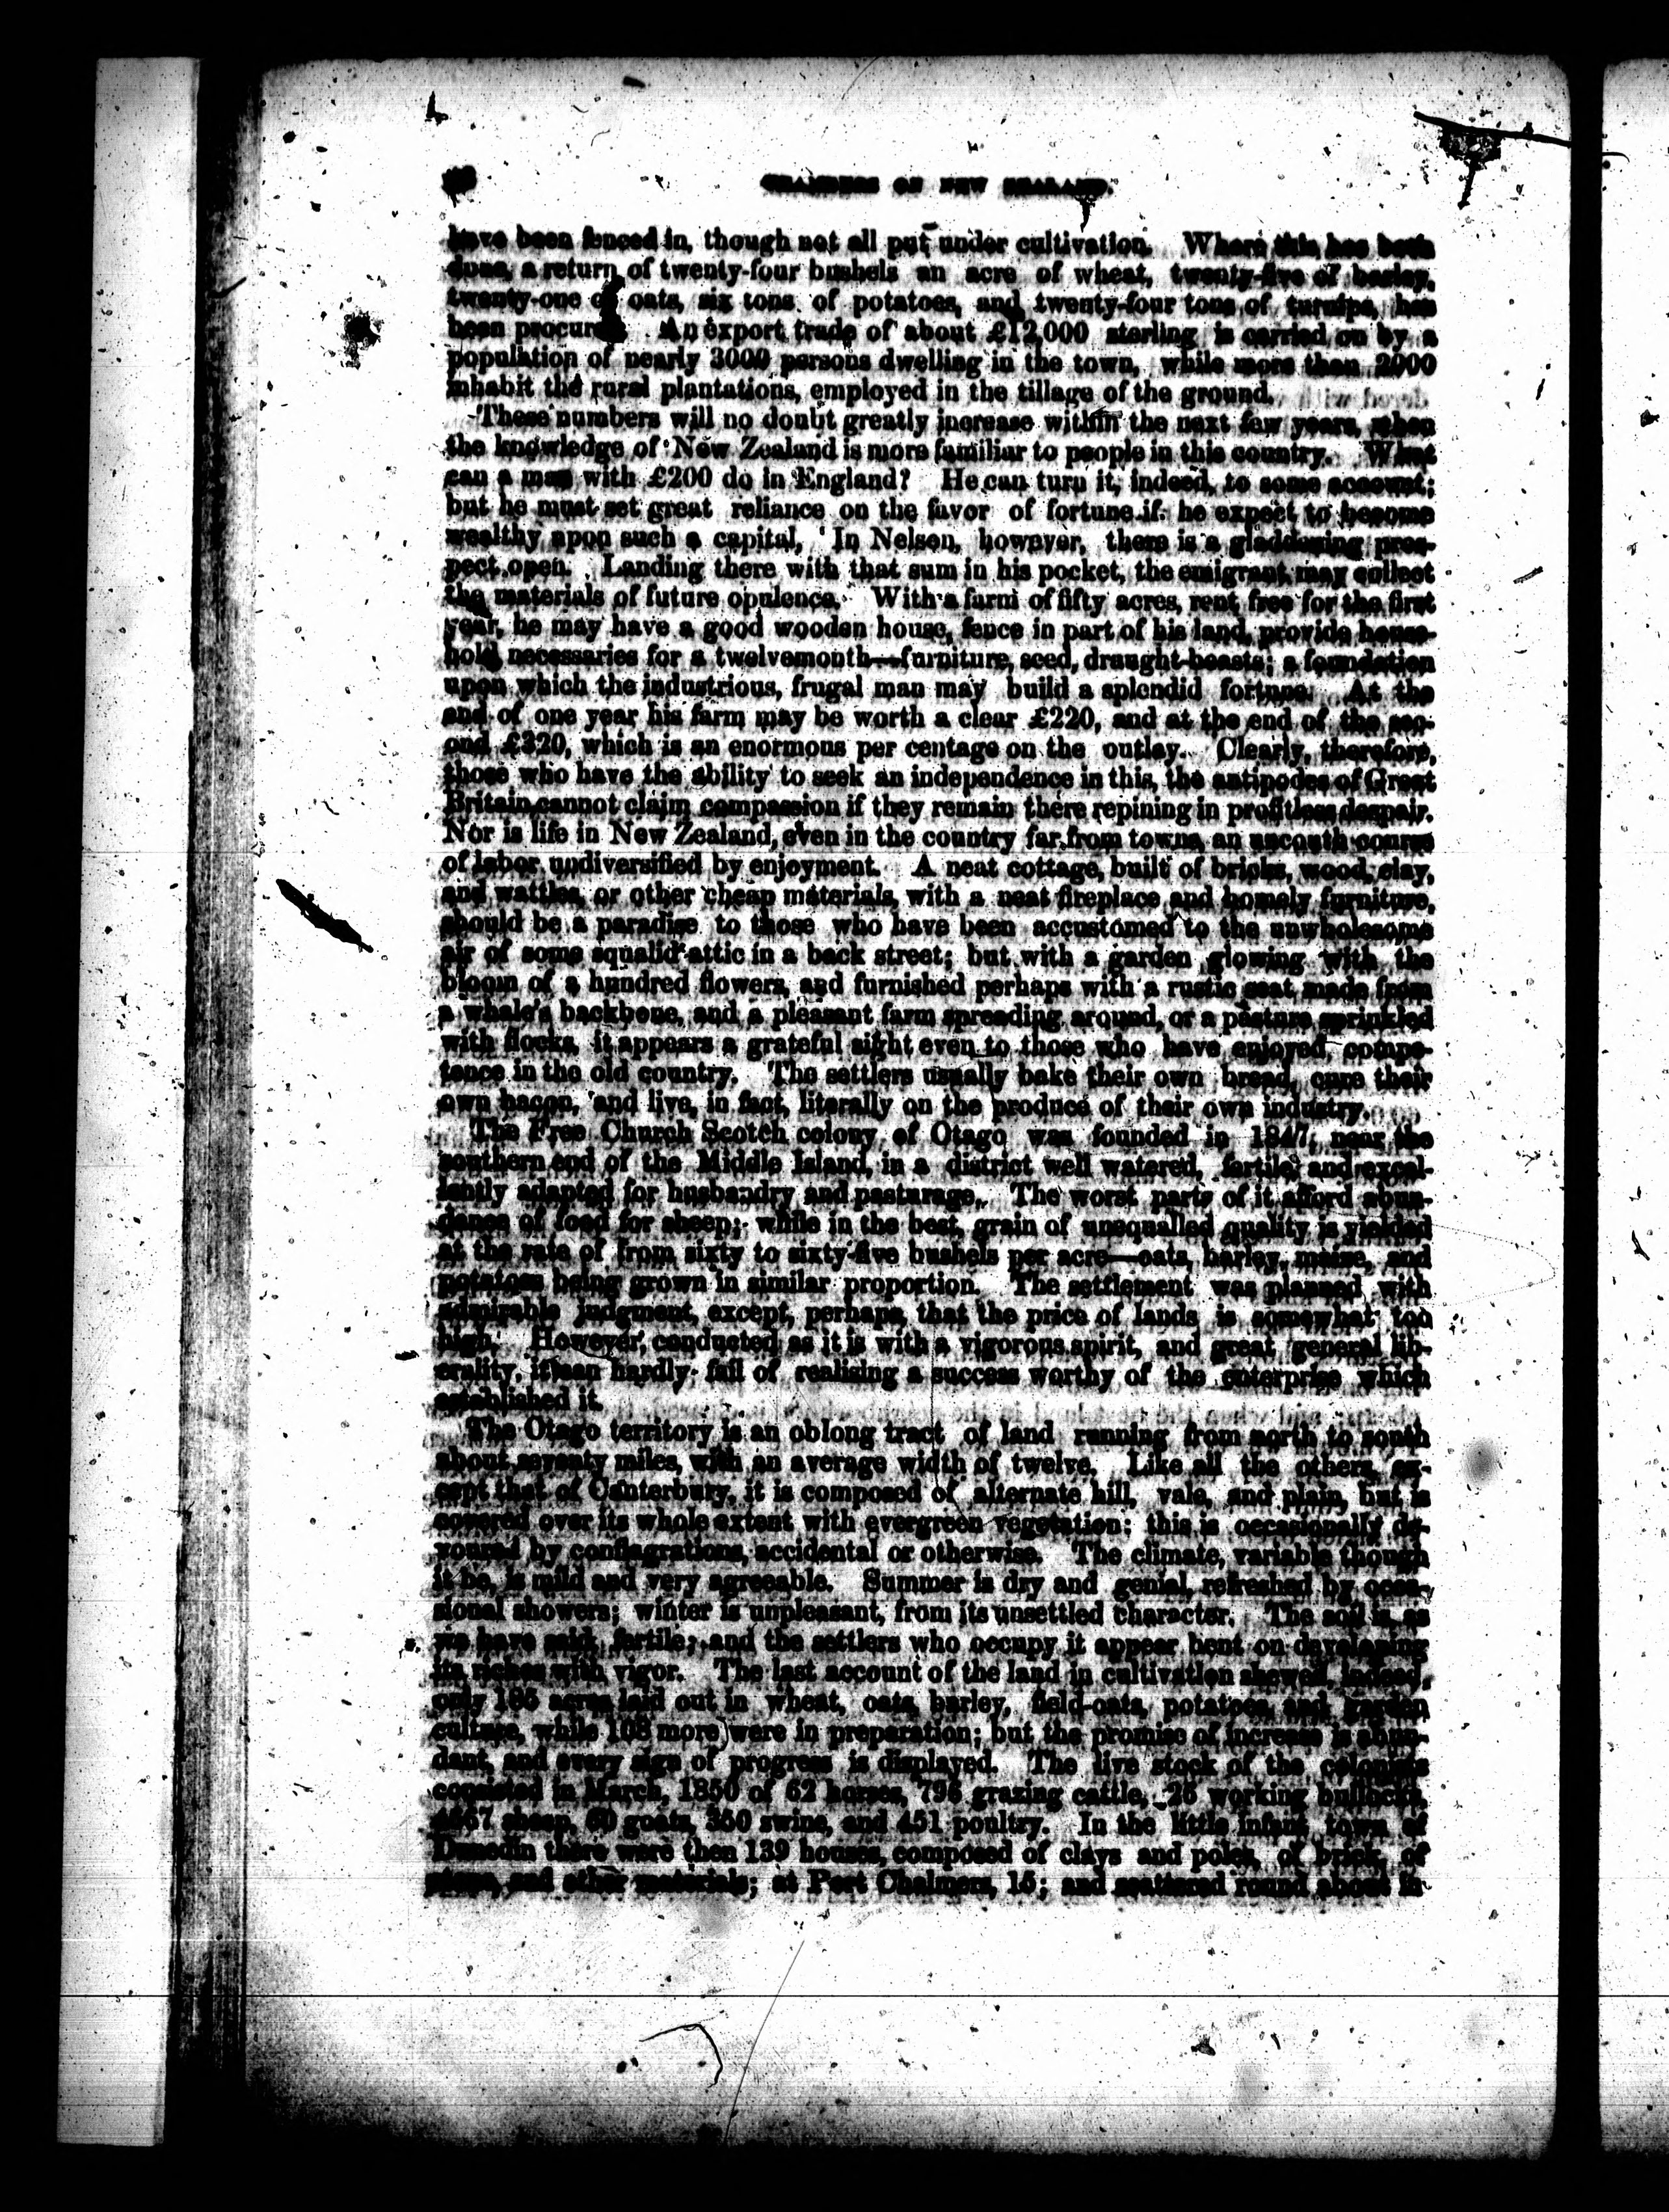 CHAMBERS ON NEW ZEALAND.
have been fenced in, though not all put under cultivation. Where this has been
done, a return of twenty-four bushels an acre of wheat, twenty-five of barley,
twenty-one of oats, six tons of potatoes, and twenty-four tons of turnips, has
been procured. An export trade of about £12,000 sterling is carried on by a
population of nearly 3000 persons dwelling in the town, while more than 2000
inhabit the rural plantations, employed in the tillage of the ground.
These numbers will no doubt greatly increase within the next few years, when
the knowledge of New Zealand is more familiar to people in this country. What
can a man with £200 do in England? He can turn it, indeed, to some account;
but he must set great reliance on the favor of fortune if he expect to become
wealthy upon such a capital. In Nelson, however, there is a gladdening pros-
pect open. Landing there with that sum in his pocket, the emigrant may collect
the materials of future opulence. With a farm of fifty acres, rent free for the first
year, he may have a good wooden house, fence in part of his land, provide house-
hold necessaries for a twelvemonth—furniture, seed, draught-beasts; a foundation
upon which the industrious, frugal man may build a splendid fortune. At the
end of one year his farm may be worth a clear £220, and at the end of the sec-
ond £320, which is an enormous per centage on the outlay. Clearly, therefore,
those who have the ability to seek an independence in this, the antipodes of Great
Britain cannot claim compassion if they remain there repining in profitless despair.
Nor is life in New Zealand, even in the country far from towns, an uncouth course
of labor undiversified by enjoyment. A neat cottage, built of bricks, wood, clay,
and wattles, or other cheap materials, with a neat fireplace and homely furniture,
should be a paradise to those who have been accustomed to the unwholesome
air of some squalid attic in a back street; but with a garden glowing with the
bloom of a hundred flowers, and furnished perhaps with a rustic seat made from
a whale's backbone, and a pleasant farm spreading around, or a pasture sprinkled
with flocks, it appears a grateful sight even to those who have enjoyed compe-
tence in the old country. The settlers usually bake their own bread, cure their
own bacon, and live, in fact, literally on the produce of their own industry.
The Free Church Scotch colony of Otago was founded in 1847, near the
southern end of the Middle Island, in a district well watered, fertile, and excel-
lently adapted for husbandry and pasturage. The worst parts of it afford abun-
dance of food for sheep; while in the best, grain of unequalled quality is yielded
at the rate of from sixty to sixty-five bushels per acre—oats, barley, maize, and
potatoes being grown in similar proportion. The settlement was planned with
admirable judgment, except, perhaps, that the price of lands is somewhat too
high. However, conducted as it is with a vigorous spirit, and great general lib-
erality, it can hardly fail of realising a success worthy of the enterprise which
established it.
The Otago territory is an oblong tract of land running from north to south
about seventy miles, with an average width of twelve. Like all the others, ex-
cept that of Canterbury, it is composed of alternate hill, vale, and plain, but is
covered over its whole extent with evergreen vegetation: this is occasionally de-
voured by conflagrations, accidental or otherwise. The climate, variable though
it be, is mild and very agreeable. Summer is dry and genial, refreshed by occa-
sional showers; winter is unpleasant, from its unsettled character. The soil is, as
we have said, fertile; and the settlers who occupy it appear bent on developing
its riches with vigor. The last account of the land in cultivation shewed, indeed,
only acres laid out in wheat, oats, barley, field-oats, potatoes, and garden
culture, while 108 more were in preparation; but the promise of increase is abun-
dant, and every sign of progress is displayed. The live stock of the colonists
consisted in March, 1850 of 62 horses, 796 grazing cattle, 26 working bullocks,
sheep, 60 goats, 360 swine, and 451 poultry. In the little infant town of
Dunedin there were then 139 houses, composed of clays and poles, of brick, of
stone, and other materials; at Port Chalmers, 15; and scattered round about in